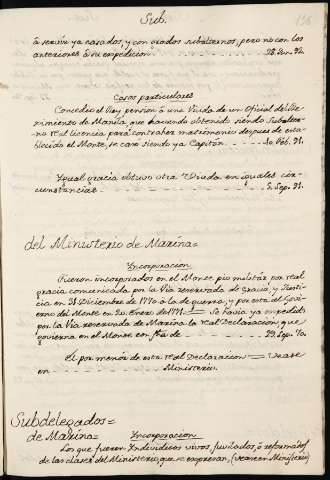 Sub.
136
ó serán ya casados, y con grados subalternos, pero no con los
anteriores á su expedicion 28. Jun. 92.
Casos particulares
Concedió el Rey pension á una Viuda de un Oficial del Re-
gimiento de Manila que haviendo obtenido siendo Subalter-
no real licencia para contraher matrimonio despues de esta-
blecido el Monte, se casa siendo ya Capitan. 10. Feb. 91.
Ygual gracia obtuvo otra Viuda en iguales cir-
cunstancias 5. Sep. 91.
del Ministerio de Marina=
Yncorporacion
Fueron incorporados en el Monte pio militar por real
gracia comunicada por la Via reservada de Gracia, y Justi-
cia en 31 Diciembre de 1770 á la de guerra, y por esta al Govi-
erno del Monte en 20. Enero de 1771. Se havia ya expedido
por la Via reservada de Marina la real Declaracion, que
govierna en el Monte con fha de 29. Sep. 70.
El por menor de esta real Declaracion = Vease
en Ministerio.
Subdelegados=
de Marina= Yncorporacion
Los que fueren Yndividuos vivos, jubilados, ó reformados
de las clases del Ministerio que se expresan, (vease en Ministerio)